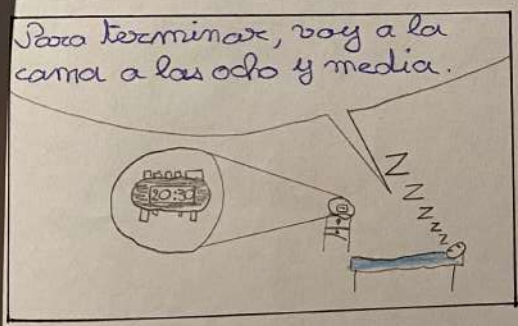 Para terminar, voy a la
cama a las ocho y media.
20:30
Z
Z
Z
Z
Z
Z
Z